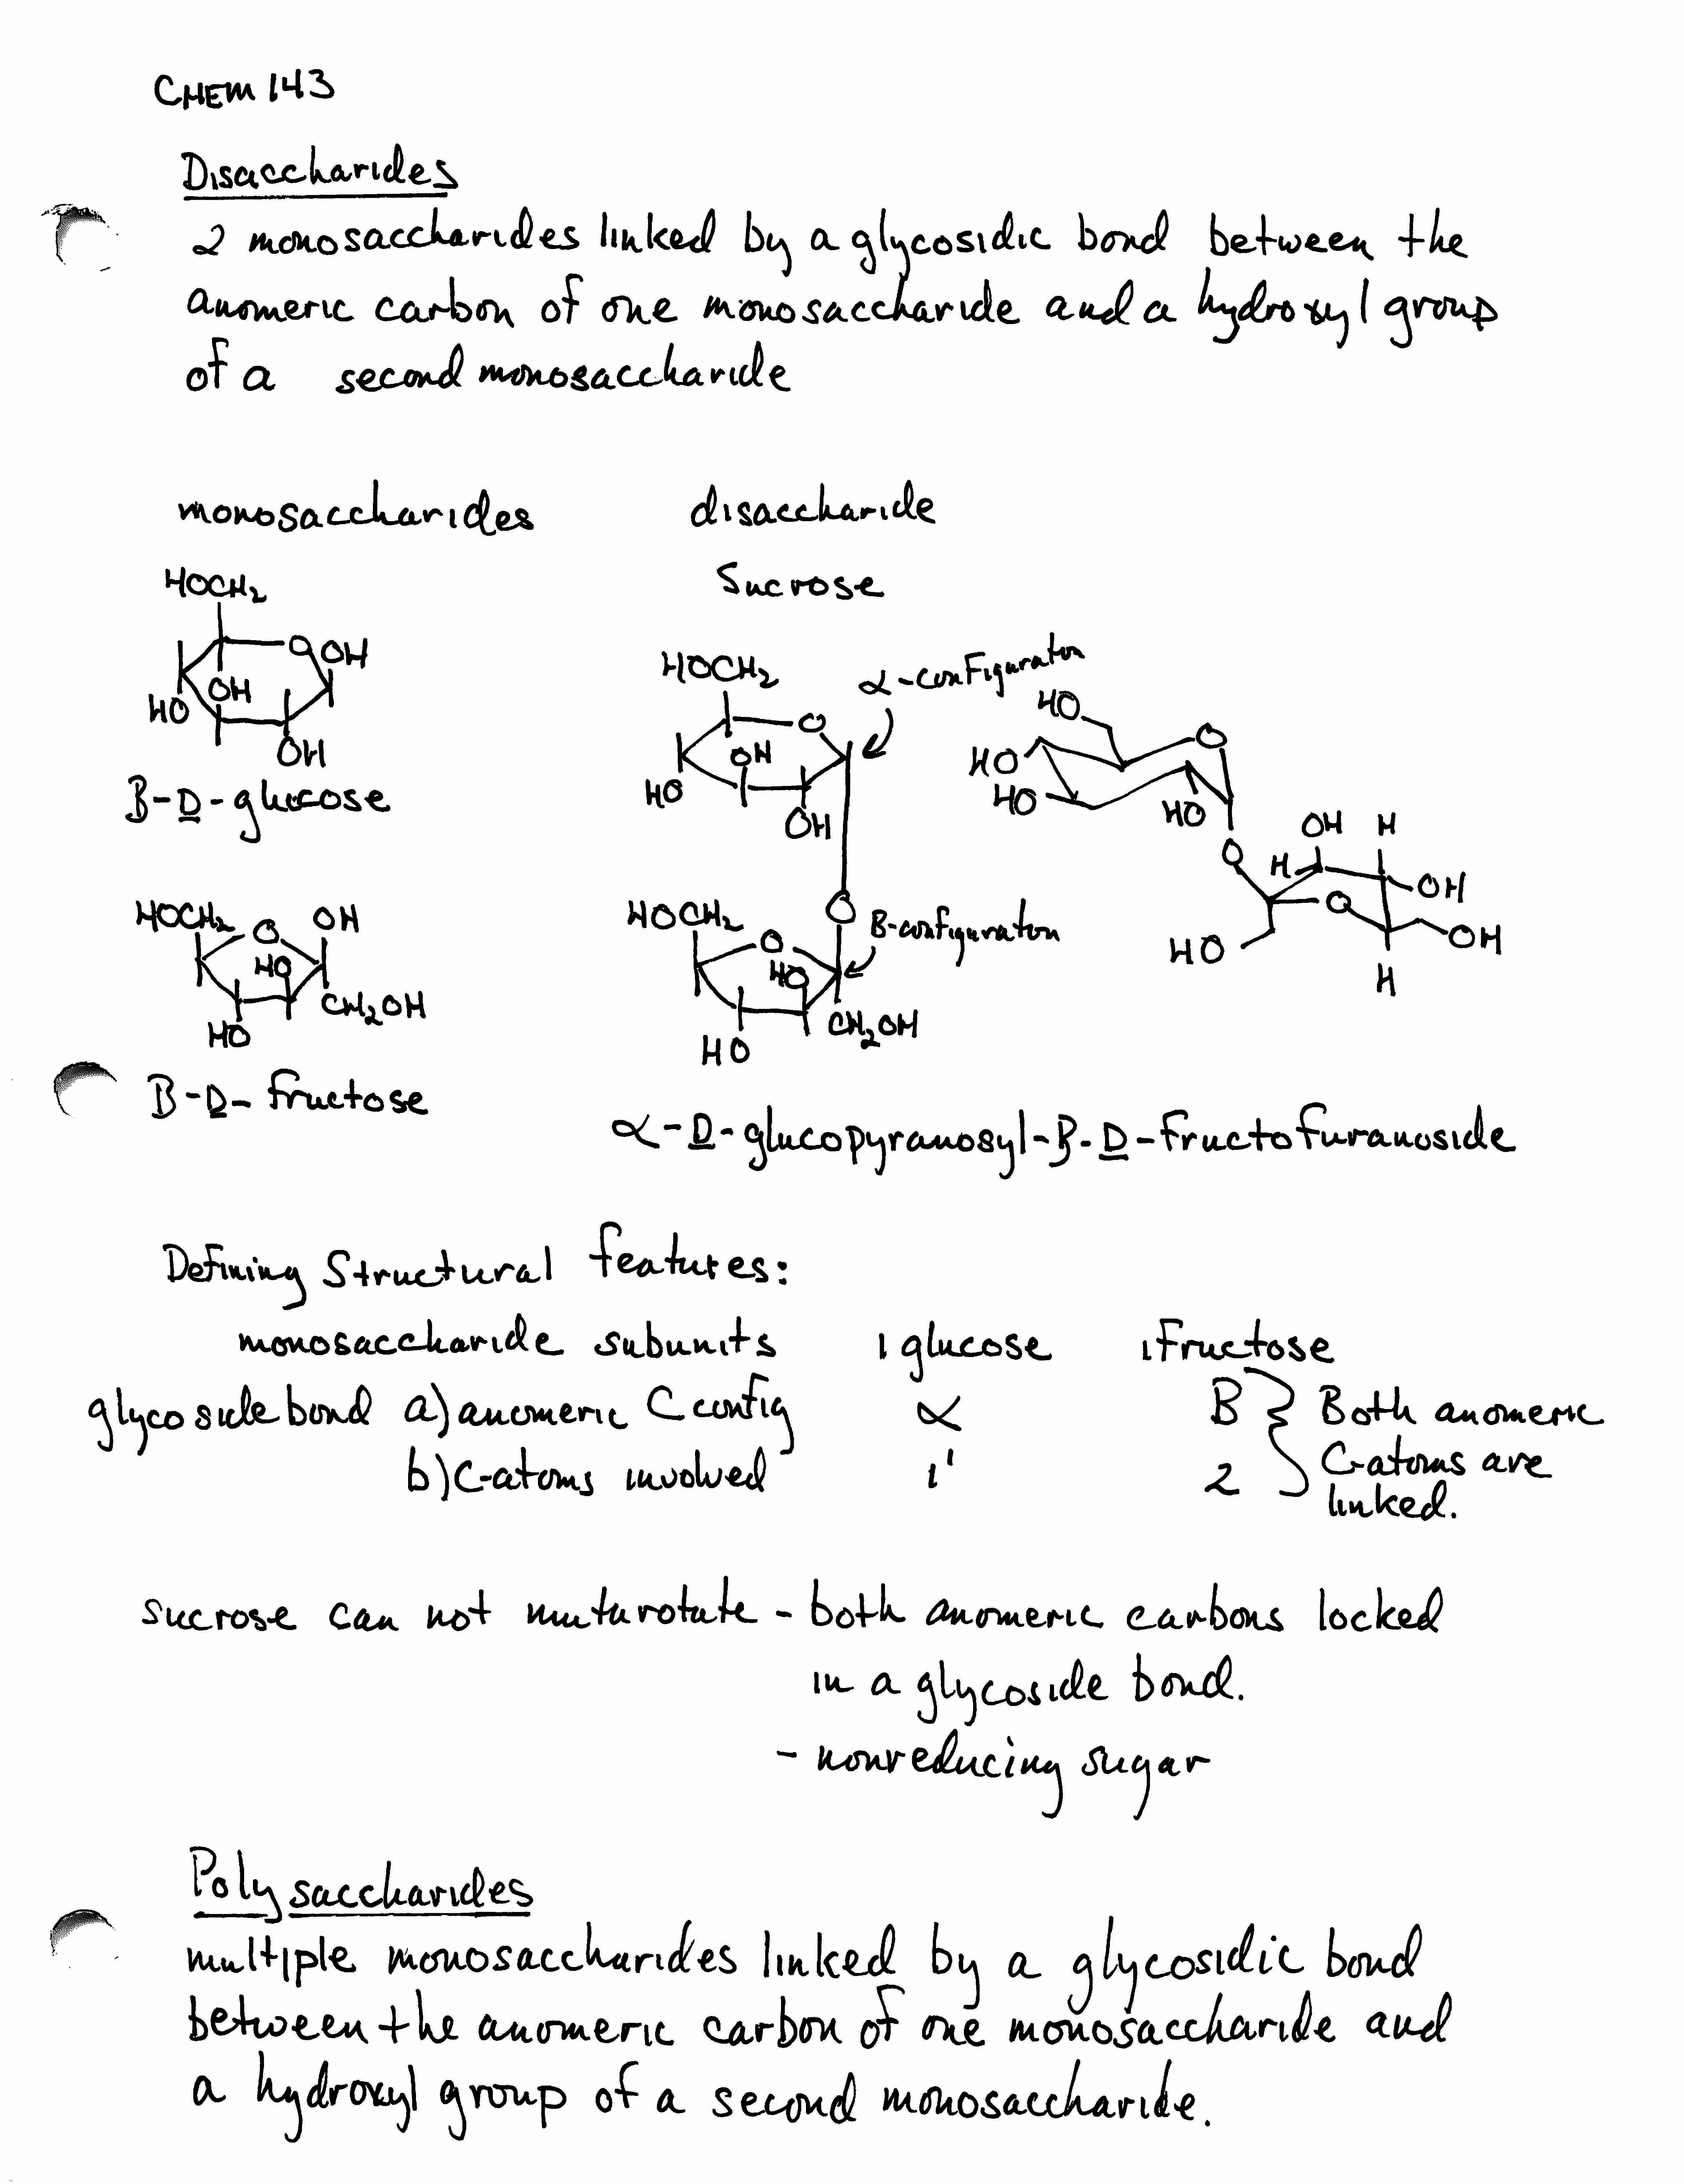 CHEM 143
Disaccharides
2 monosaccharides linked by a glycosidic bond between the
anomeric carbon of one monosaccharide and a hydroxyl group
of a second monosaccharide
monosaccharides disaccharide
HOCH₂ Sucrose
O OH
OH
HO
OH
B-D-glucose
HOCH₂ α-configuraton
O
OH
HO
OH
HO
O
HO
HO
HO
O
OH H
H
OH
O
OH
HO
H
HOCH₂ O OH
HO
CH₂OH
HO
B-D-fructose
O
HOCH₂ B-configuraton
O
HO
CH₂OH
HO
α-D-glucopyranosyl-B-D-fructofuranoside
Defining Structural features:
monosaccharide subunits 1 glucose 1 fructose
glycoside bond a) anomeric C config α B } Both anomeric
b) C-atoms involved 1' 2 C-atoms are
linked.
sucrose can not mutarotate - both anomeric carbons locked
in a glycoside bond.
- nonreducing sugar
Polysaccharides
multiple monosaccharides linked by a glycosidic bond
between the anomeric carbon of one monosaccharide and
a hydroxyl group of a second monosaccharide.